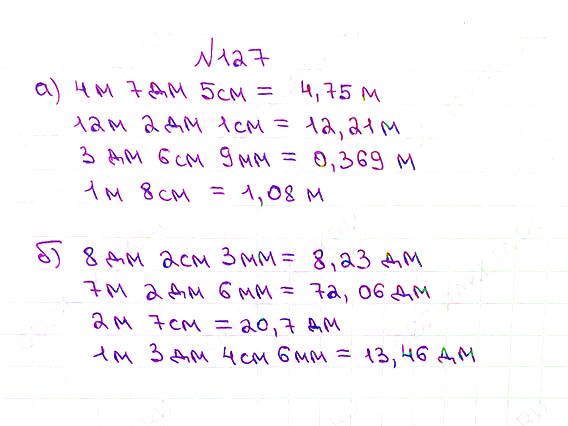 №127
а) 4м 7дм 5см = 4,75 м
12м 2дм 1см = 12,21м
3 дм 6см 9мм = 0,369 м
1м 8см = 1,08 м
б) 8дм 2см 3мм = 8,23 дм
7м 2дм 6мм = 72,06 дм
2м 7см = 20,7 дм
1м 3дм 4см 6мм = 13,46 дм